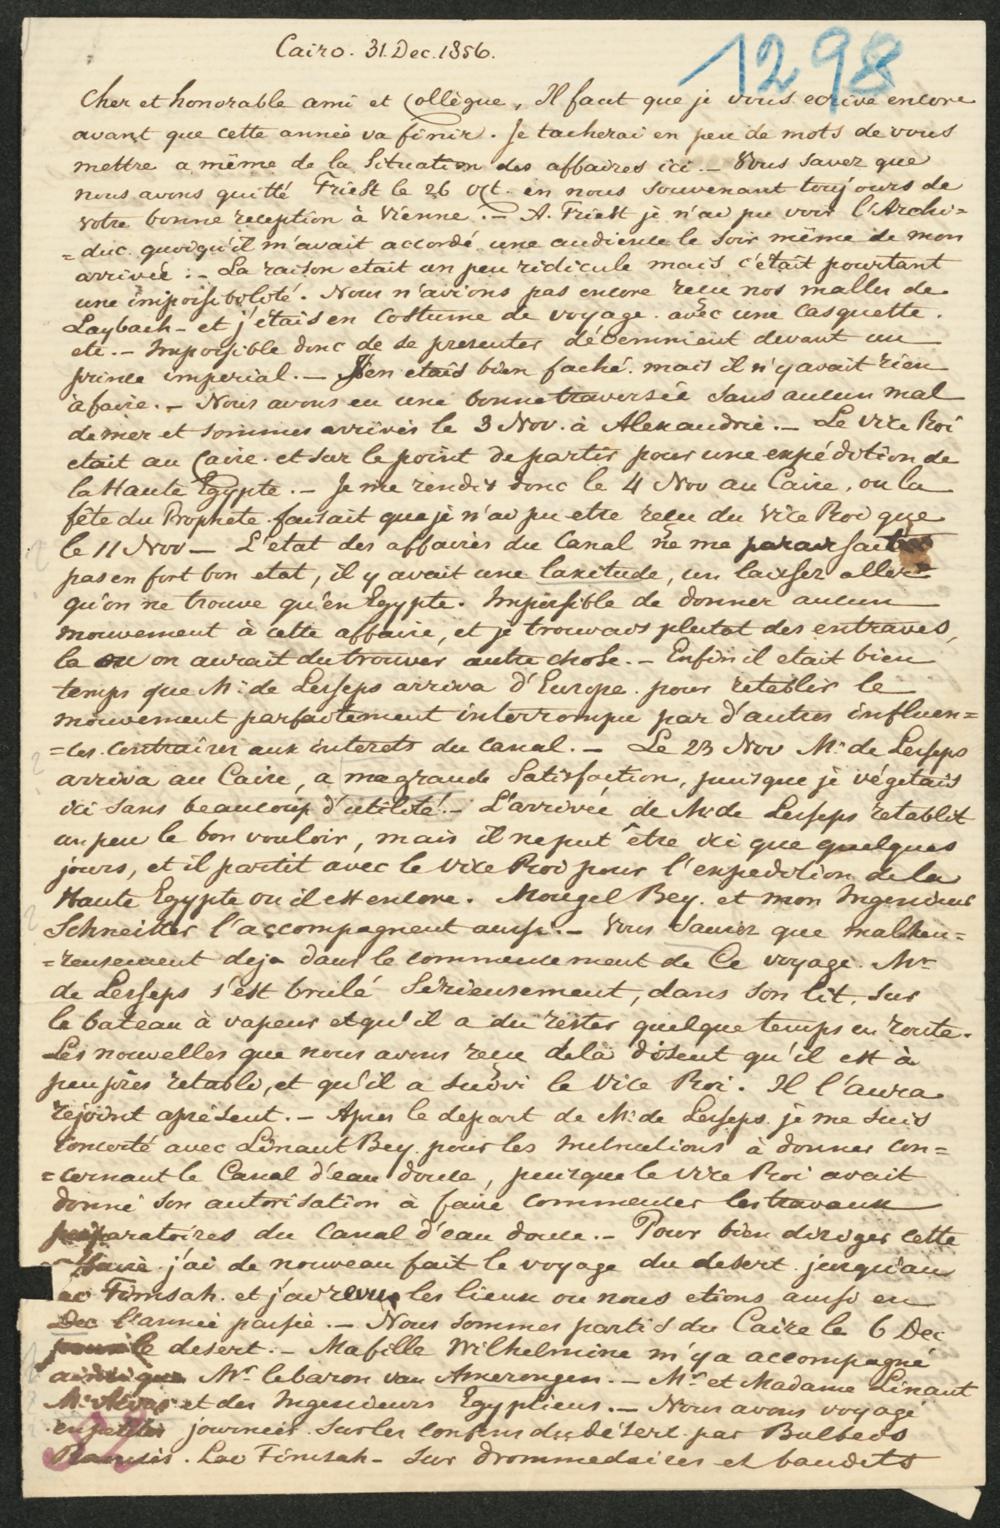 Cairo. 31. Dec. 1856.
1298
Cher et honorable ami et Collègue, Il faut que je vous ecrive encore
avant que cette année va finir. Je tacherai en peu de mots de vous
mettre a même de la Situation des affaires ici. — Vous savez que
nous avons quitté Triest le 26 Oct. en nous souvenant toujours de
votre bonne reception à Vienne. — A. Triest je n'ai pu voir l'Archi=
=duc. quoiqu'il m'avait accordé une audience le soir même de mon
arrivée. — La raison etait un peu ridicule mais c'était pourtant
une impossiboloté. Nous n'avions pas encore recu nos malles de
Laybach — et j'étais en costume de voyage. avec une casquette.
etc. — Impossible donc de se presenter décemment devant un
prince imperial. — J'en etais bien faché. mais il n'y avait rien
à faire. — Nous avons eu une bonne traversée sans aucun mal
de mer et sommes arrivés le 3 Nov. à Alexandrie. — Le Vice Roi
etait au Caire. et sur le point de partir pour une expédition de
la Haute Egypte. — Je me rendis donc le 4 Nov au Caire, ou la
fête du Prophete faisait que je n'ai pu etre reçu du Vice Roi que
le 11 Nov — L'etat des affaires du Canal ne me
pas en fort bon etat, il y avait une laxitude, un laisser aller
qu'on ne trouve qu'en Egypte. Impossible de donner aucun
mouvement à cette affaire, et je trouvais plutot des entraves,
la ou on aurait du trouver autre chose. — Enfin il etait bien
temps que Mr de Lesseps arriva d'Europe pour retablir le
mouvement parfaitement interrompu par d'autres influen=
=ces contraires aux interets du Canal. — Le 23 Nov Mr de Lesseps
arriva au Caire, a ma grande Satisfaction, puisque je végetais
ici sans beaucoup d'utilité! — L'arrivée de Mr de Lesseps retablit
un peu le bon vouloir, mais il ne put être ici que quelques
jours, et il partit avec le Vice Roi pour l'expedition de la
Haute Egypte ou il est encore. Mougel Bey. et mon Ingenieur
Schneitter l'accompagnent aussi. — Vous saurez que malheu=
=reusement deja dans le commencement de Ce voyage. Mr
de Lesseps s'est brulé Sérieusement, dans son lit, sur
le bateau à vapeur et qu'il a du rester quelque temps en route.
Les nouvelles que nous avons recu delà disent qu'il est à
peu près retabli, et qu'il a suivi le Vice Roi. Il l'aura
rejoint apresent. — Apres le depart de Mr de Lesseps je me suis
concerté avec Linaut Bey pour les Instructions à donner con=
=cernant le Canal d'eau douce, puisque le Vice Roi avait
donné son autorisation à faire commencer les travaux
preparatoires du Canal d'eau douce. — Pour bien diriger cette
affaire j'ai de nouveau fait le voyage du desert jusqu'au
Lac Timsah. et j'ai revu les lieux ou nous etions aussi en
Dec l'année passée. — Nous sommes partis du Caire le 6 Dec
pour le desert. — Ma fille Wilhelmine m'y a accompagné
ainsi que Mr le baron van Amerongen. — Mr et Madame Linaut
Mr et des Ingenieurs Egyptiens. — Nous avons voyagé
en petites journées sur les confins du désert par Bulbeis
Ramsis. Lac Timsah — sur drommedaires et baudets